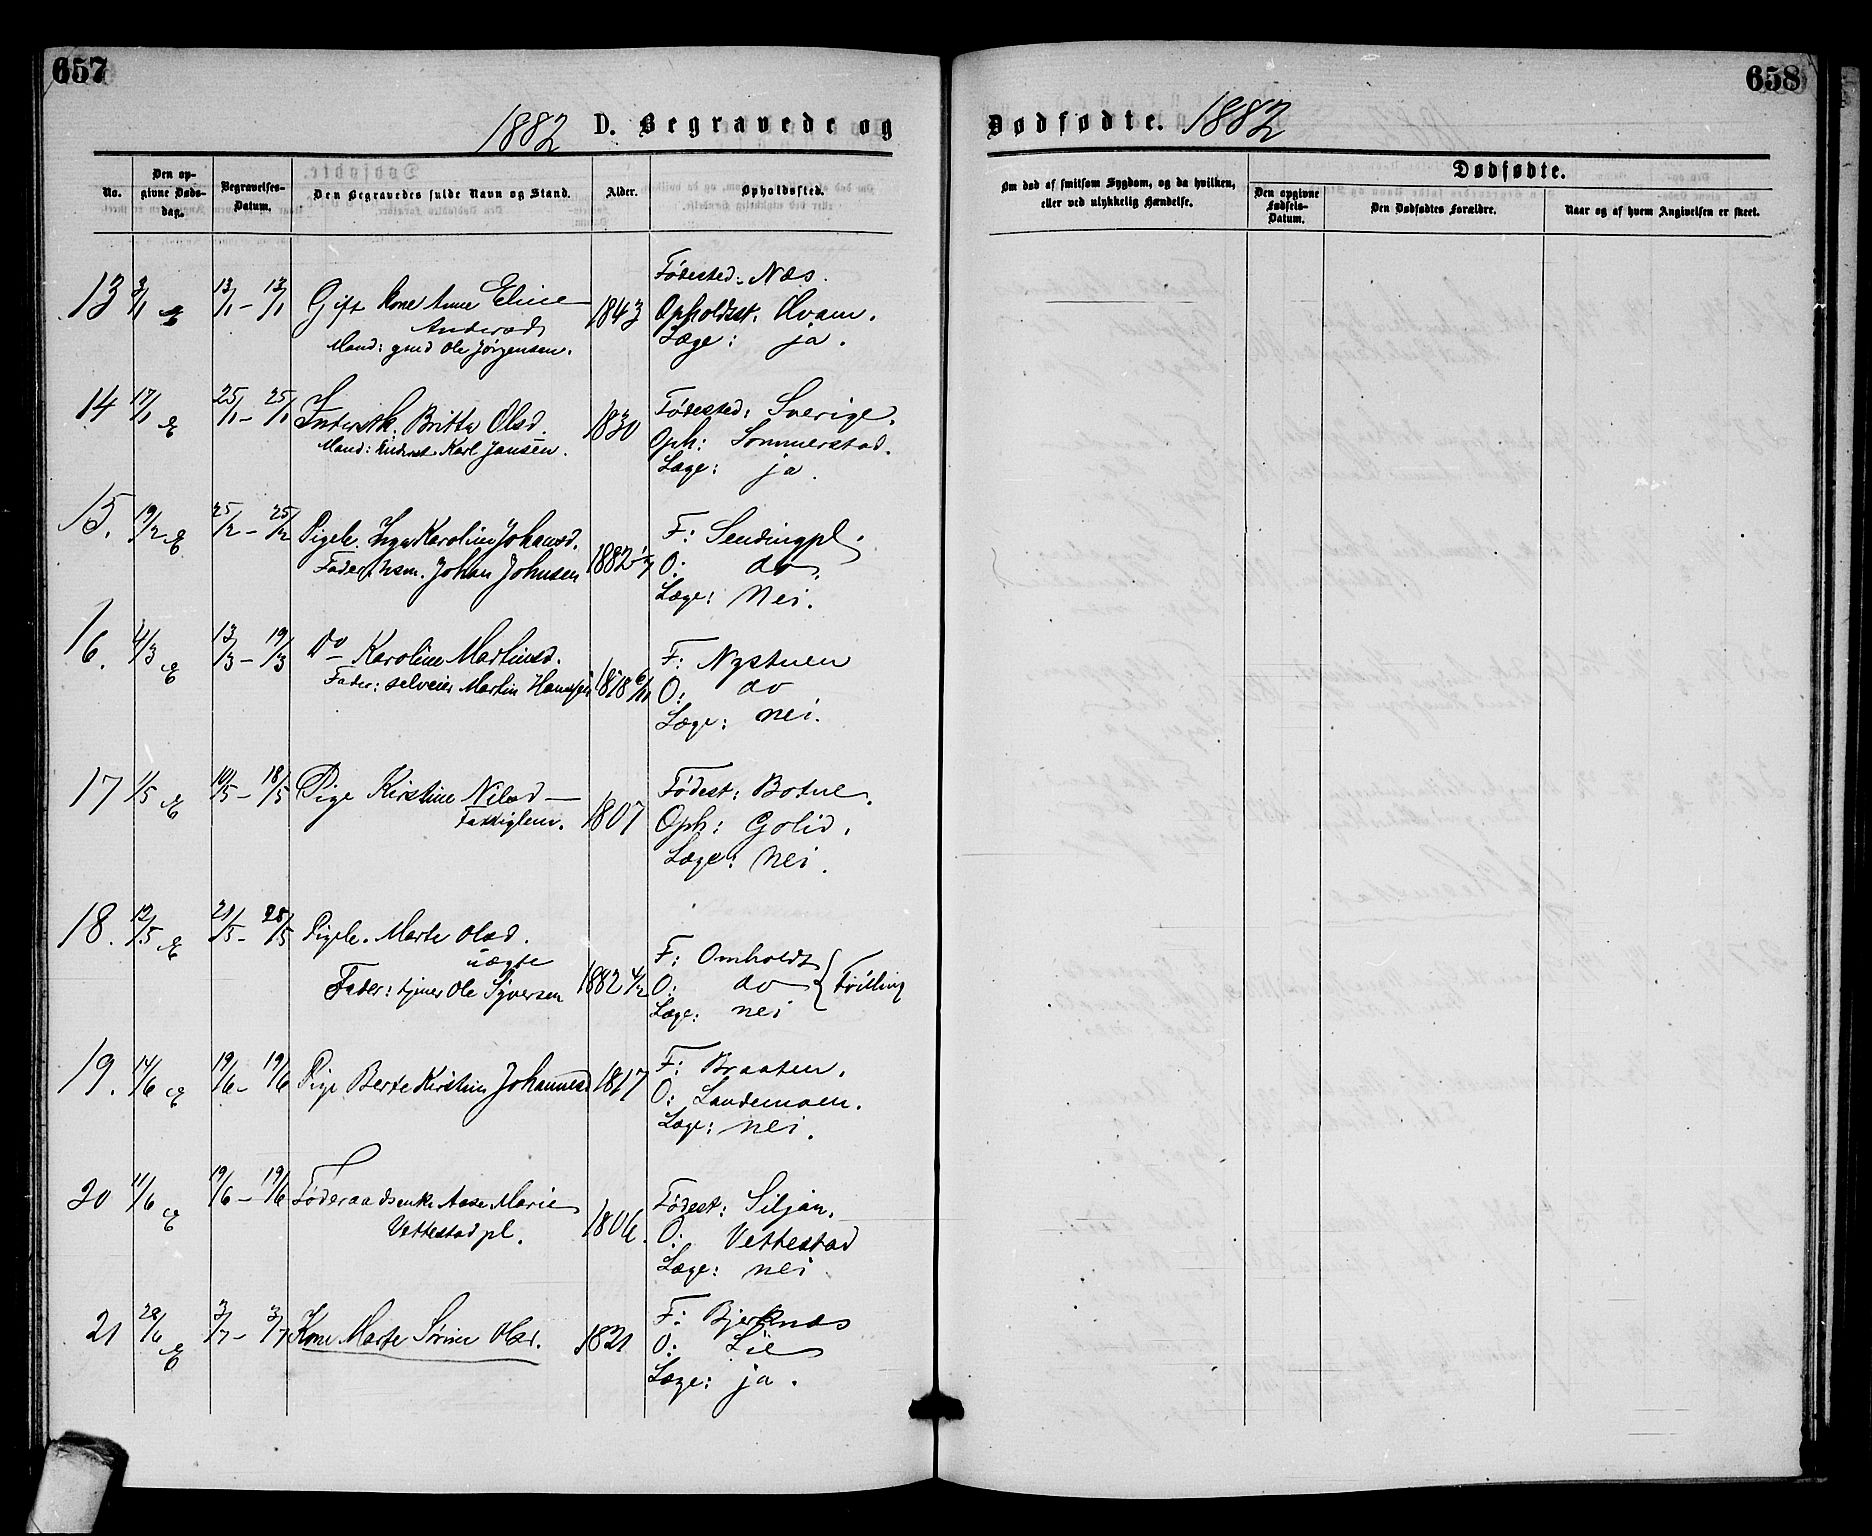 657
658
1882 D. Begravede og
Dødfødte. 1882
No.
Den opgivne Dødsdag.
Begravelses-Datum.
Den Begravedes fulde Navn og Stand.
Alder.
Opholdssted.
Om død af smitsom Sygdom, og da hvilken, eller ved ulykkelig Hændelse.
Dødfødte.
Den opgivne Fødsels-Datum.
Den Dødfødtes Forældre.
Naar og af hvem Angivelsen er skeet.
13 3/1 13/1 – 13/1 Gift Kone Anne Eline 1843 Fødested: Næs.
Andersd. Opholdsst: Hvam.
Mand: gmd Ole Jørgensen. Læge: ja.
14 17/1 25/1 – 25/1 Inderstk. Britta Olsd. 1830 Fødested: Sverige.
Mand: Inderst Karl Jansen. Oph: Sommerstad.
Læge: ja.
15. 19/2 25/2 – 25/2 Pigeb. Inga Karoline Johansd. F: Sendingpl.
Fader: hsm. Johan Johnsen 1882 O: do.
Læge: Nei.
16. 4/3 13/3 – 19/3 Do – Karoline Martinsd. F: Nystuen
Fader: selveier Martin Hansen 1878 6/11 O: do
Læge: nei.
17 1/5 10/5 – 18/5 Pige Kirstine Nilsd – 1807 Fødest: Botne.
Fattiglem. Oph: Golid.
Læge: Nei.
18. 12/5 21/5 – 28/5 Pigeb. Marte Olsd.
uægte F: Omholdt
Fader: tjener Ole Syversen 1882 4/2 O: do Tvilling
Læge: nei
19. 14/6 19/6 – 19/6 Pige Berte Kirstine Johannesd 1817 F: Braaten.
O: Landemoen.
Læge: nei.
20 11/6 19/6 – 19/6 Føderaadsenke Aase Marie 1806. Fødest: Siljan.
Vettestad pl. O: Vettestad
Læge: nei
21 28/6 3/7 – 3/7 Kone Marte Sørine Olsd. 1821 F: Bjerknæs
O: Lie
Læge: ja.